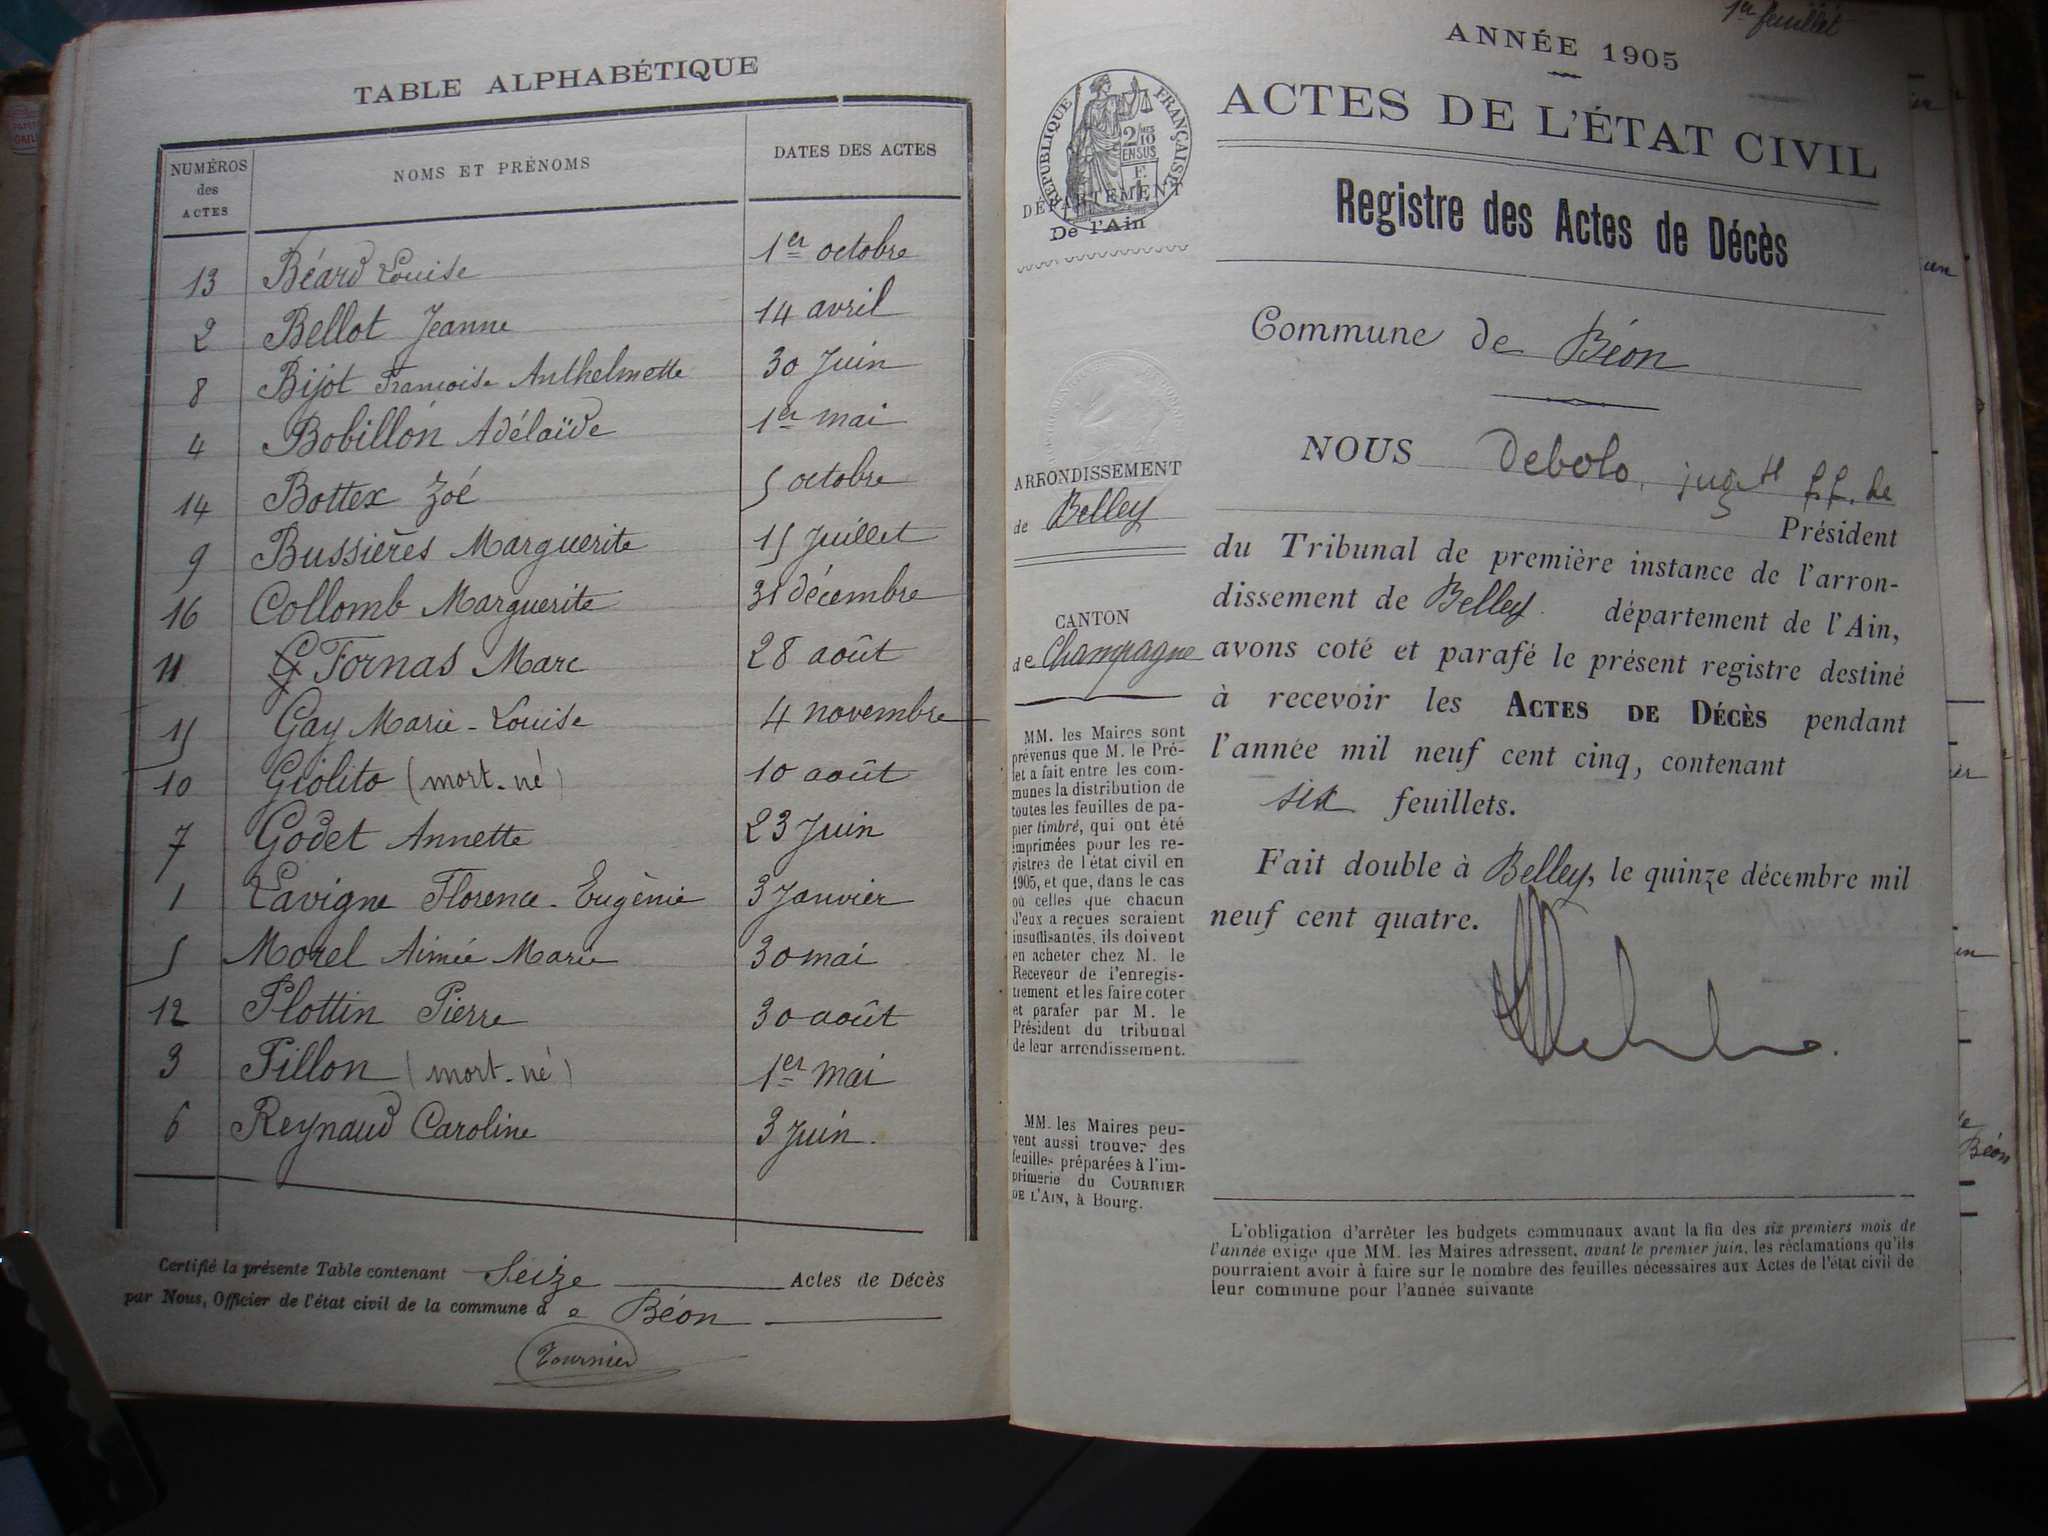 TABLE ALPHABÉTIQUE
NUMÉROS des ACTES
NOMS ET PRÉNOMS
DATES DES ACTES
13 Béard Louise 1er octobre
2 Bellot Jeanne 14 avril
8 Bijot Françoise Anthelmette 30 Juin
4 Bobillon Adélaïde 1er mai
14 Bottex Zoé 5 octobre
9 Bussières Marguerite 15 Juillet
16 Collomb Marguerite 31 décembre
11 Fornas Marc 28 août
15 Gay Marie-Louise 4 novembre
10 Giolito (mort-né) 10 août
7 Godet Annette 23 Juin
1 Lavigne Florence-Eugènie 3 Janvier
5 Morel Aimée Marie 30 mai
12 Plottin Pierre 30 août
3 Pillon (mort-né) 1er mai
6 Reynaud Caroline 3 Juin.
Certifié la présente Table contenant Seize Actes de Décès
par Nous, Officier de l'état civil de la commune d e Béon
Tournier
1er feuillet
ANNÉE 1905
ACTES DE L'ÉTAT CIVIL
Registre des Actes de Décès
Commune de Béon
NOUS Debolo, juge ff. de
Président
du Tribunal de première instance de l'arron-
dissement de Belley département de l'Ain,
avons coté et parafé le présent registre destiné
à recevoir les ACTES DE DÉCÈS pendant
l'année mil neuf cent cinq, contenant
six feuillets.
Fait double à Belley, le quinze décembre mil
neuf cent quatre.
L'obligation d'arrêter les budgets communaux avant la fin des six premiers mois de
l'année exige que MM. les Maires adressent, avant le premier juin, les réclamations qu'ils
pourraient avoir à faire sur le nombre des feuilles nécessaires aux Actes de l'état civil de
leur commune pour l'année suivante
RÉPUBLIQUE FRANÇAISE
2/10 EN SUS
DÉPARTEMENT
De l'Ain
ARRONDISSEMENT
de Belley
CANTON
de Champagne
MM. les Maires sont
prévenus que M. le Pré-
fet a fait entre les com-
munes la distribution de
toutes les feuilles de pa-
pier timbré, qui ont été
imprimées pour les re-
gistres de l'état civil en
1905, et que, dans le cas
où celles que chacun
d'eux a reçues seraient
insuffisantes, ils doivent
en acheter chez M. le
Receveur de l'enregis-
trement et les faire coter
et parafer par M. le
Président du tribunal
de leur arrondissement.
MM. les Maires peu-
vent aussi trouver des
feuilles préparées à l'im-
primerie du COURRIER
DE L'AIN, à Bourg.
Béon